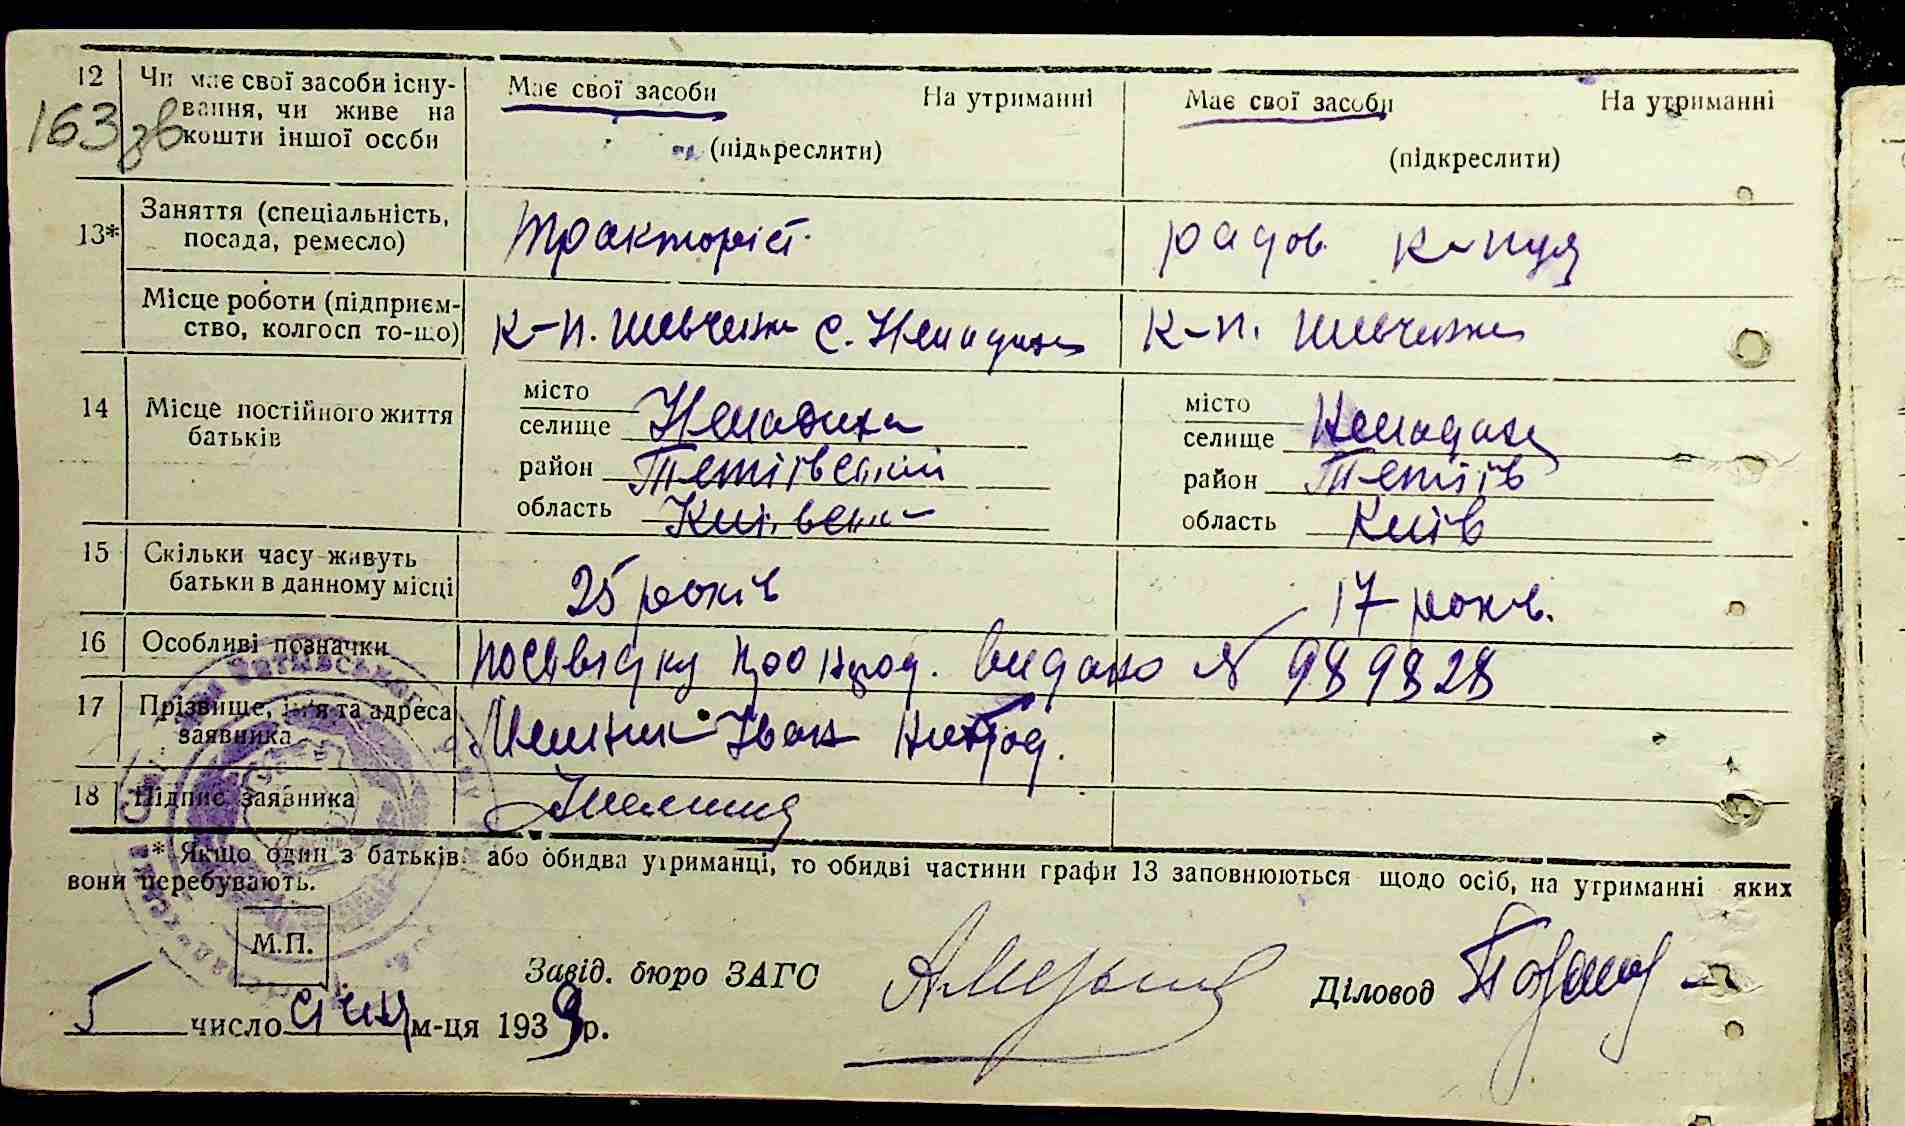 163 зв
12 Чи має свої засоби існу-
вання, чи живе на
кошти іншої особи
Має свої засоби На утриманні
(підкреслити)
Має свої засоби На утриманні
(підкреслити)
13* Заняття (спеціальність,
посада, ремесло)
Тракторіст.
рядов.
Місце роботи (підприєм-
ство, колгосп то-що)
К-п. Шевченка с.
К-п. Шевченка
14 Місце постійного життя
батьків
місто
селище
район Тетіївський
область
місто
селище
район Тетіїв
область Київ
15 Скільки часу живуть
батьки в данному місці
25 років
17 років.
16 Особливі позначки
посвідку про народ. видано № 989828
17 Прізвище, ім'я та адреса
заявника
Іван
18 Підпис заявника
* Якщо один з батьків або обидва утриманці, то обидві частини графи 13 заповнюються щодо осіб, на утриманні яких
вони перебувають.
М.П.
Завід. бюро ЗАГС
Діловод
5 число січня м-ця 1939 р.